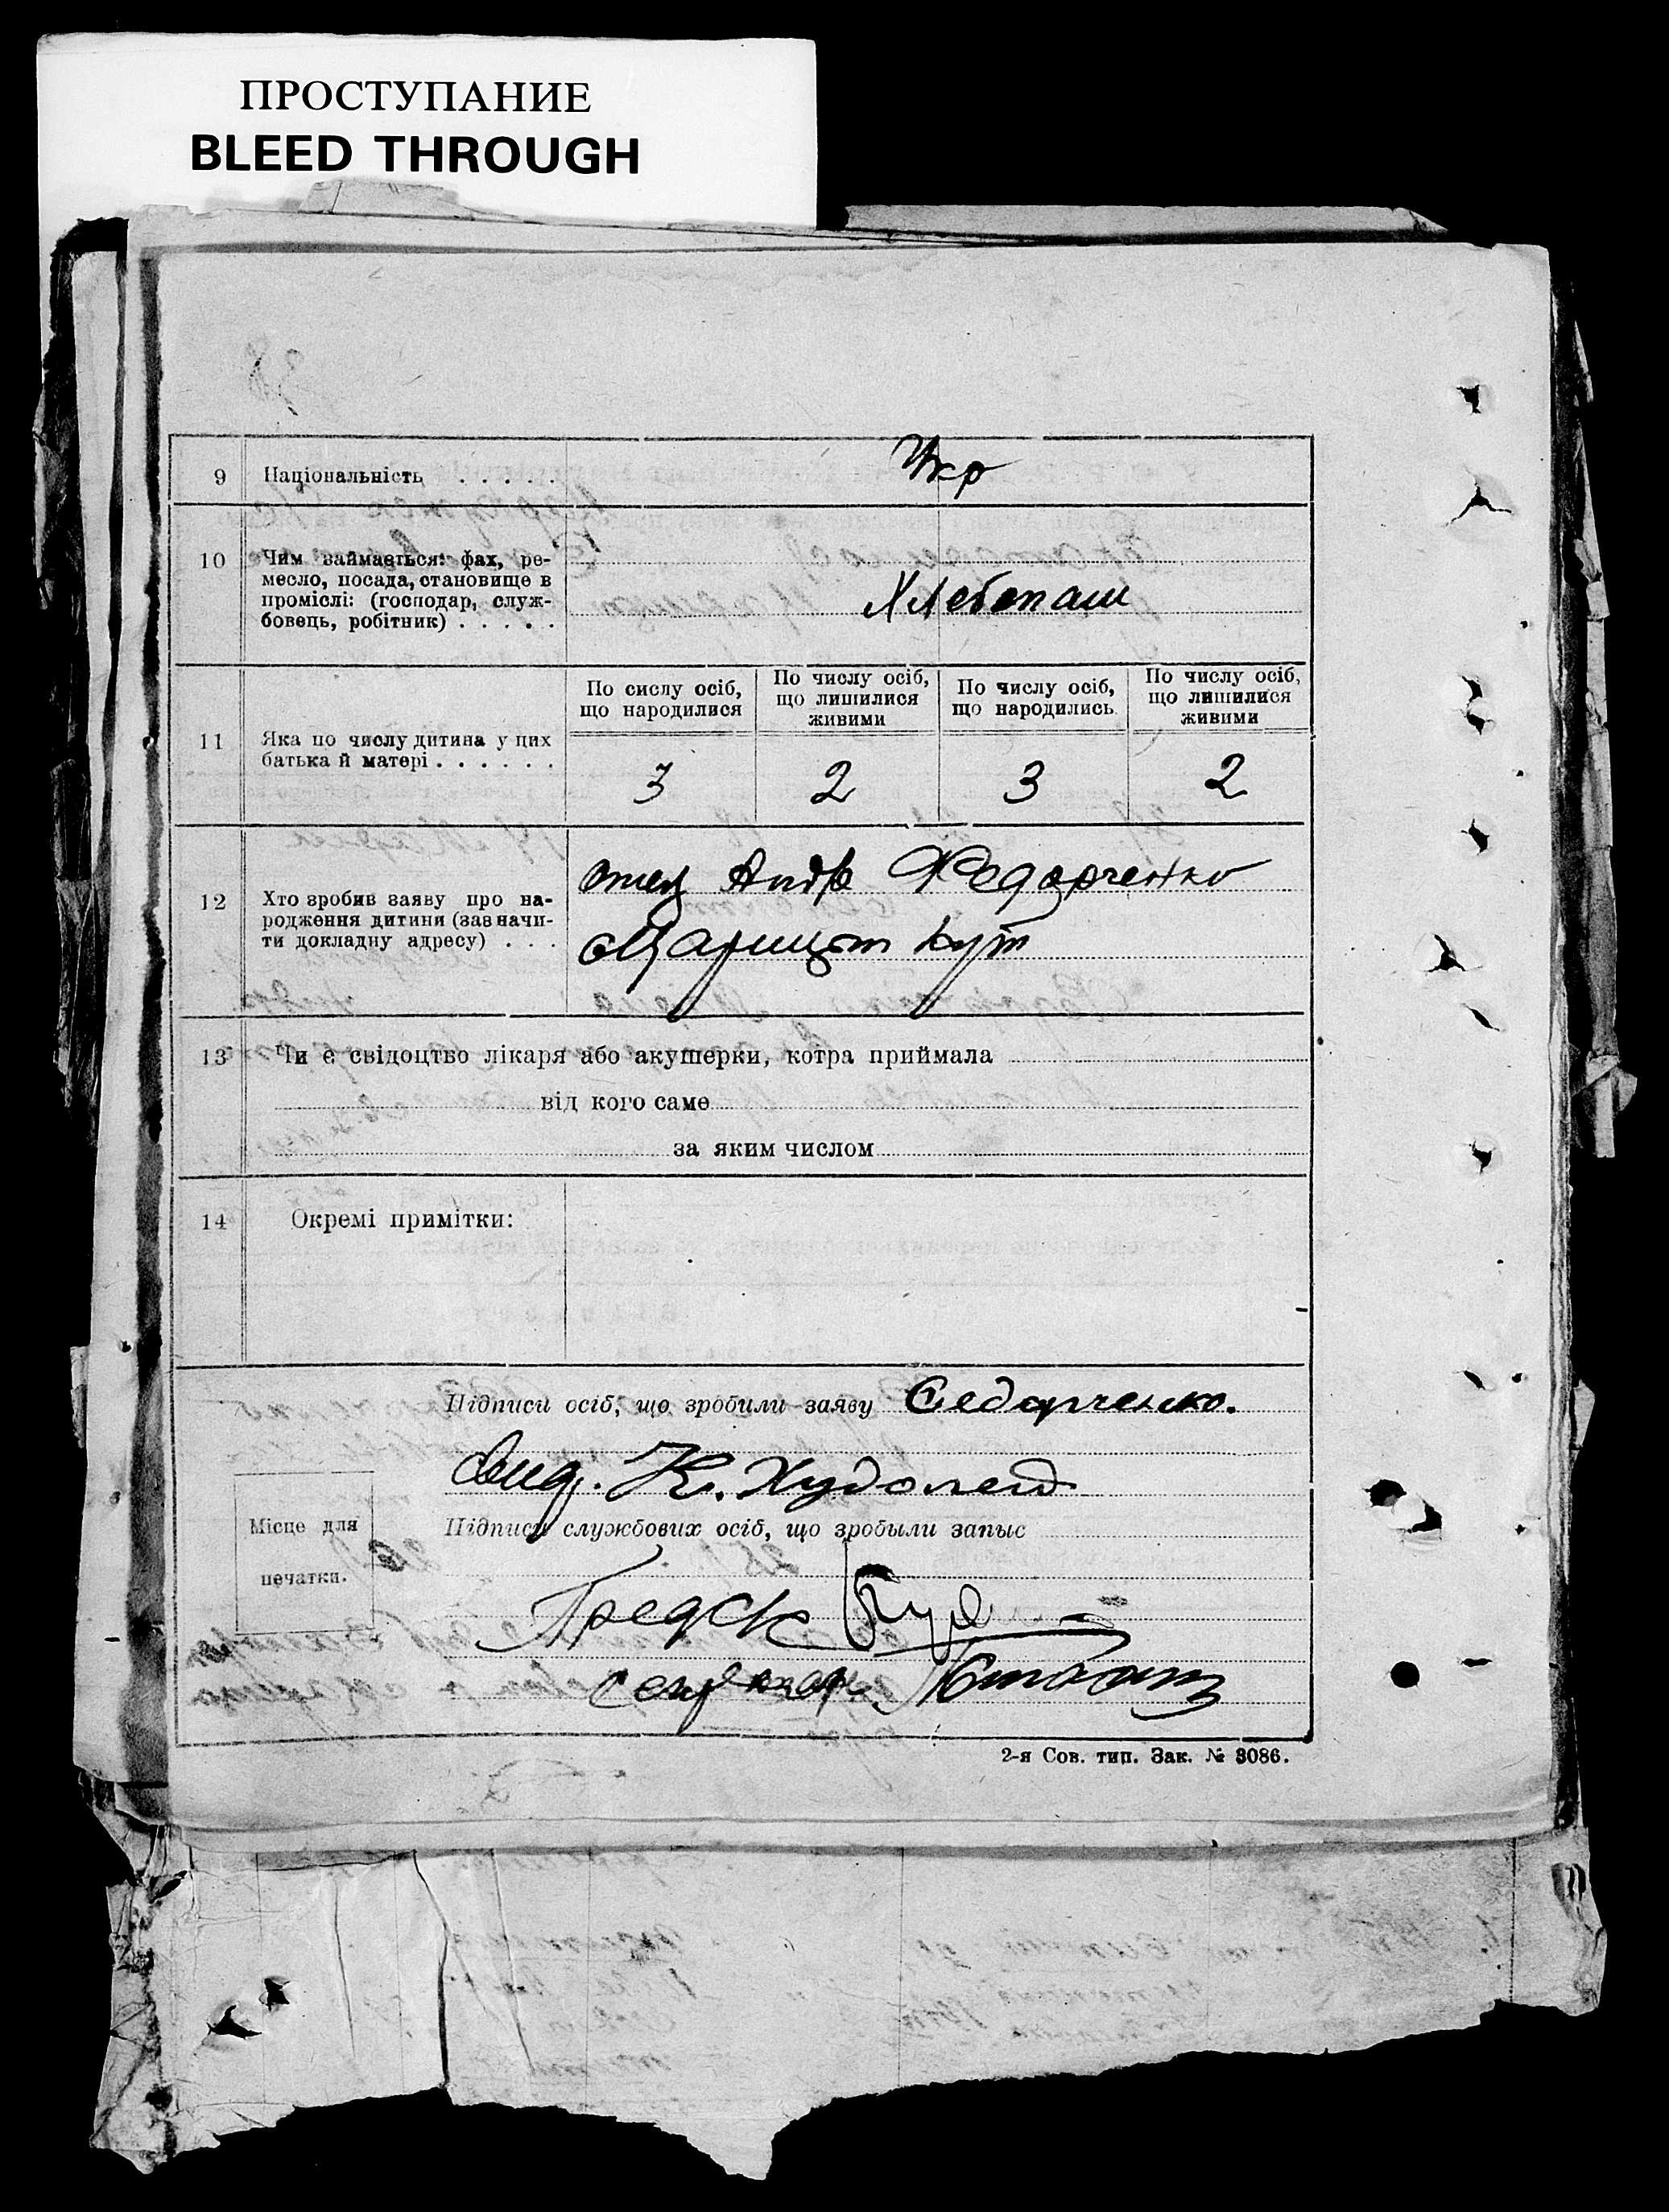 ПРОСТУПАНИЕ
BLEED THROUGH
9 Національність . . . . . Укр
10 Чим займається: фах, ре-
месло, посада, становище в
проміслі: (господар, служ-
бовець, робітник) . . . . .
Хлебопаш
11 Яка по числу дитина у цих
батька й матері . . . . . .
По сислу осіб,
що народилися
По числу осіб,
що лишилися
живими
По числу осіб,
що народились
По числу осіб,
що лишилися
живими
3 2 3 2
12 Хто зробив заяву про на-
родження дитини (зазначи-
ти докладну адресу) . . .
отец Андр Федорченко
Царицын Кут
13 Чи є свідоцтво лікаря або акушерки, котра приймала
від кого саме
за яким числом
14 Окремі примітки:
Підписи осіб, що зробили заяву Федорченко.
К. Худолей
Місце для
печатки.
Підписи службових осіб, що зробыли запыс
Предск
Секретар
2-я Сов. тип. Зак. № 3086.